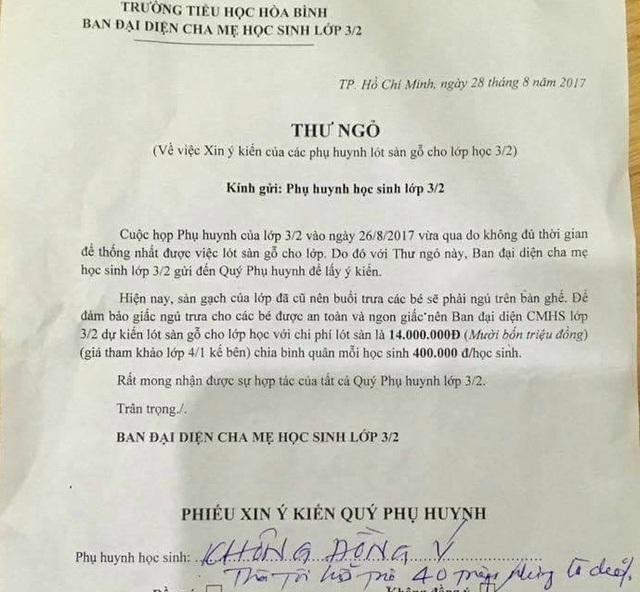 TRƯỜNG TIỂU HỌC HÒA BÌNH
BAN ĐẠI DIỆN CHA MẸ HỌC SINH LỚP 3/2
TP. Hồ Chí Minh, ngày 28 tháng 8 năm 2017
THƯ NGỎ
(Về việc Xin ý kiến của các phụ huynh lót sàn gỗ cho lớp học 3/2)
Kính gửi: Phụ huynh học sinh lớp 3/2
Cuộc họp Phụ huynh của lớp 3/2 vào ngày 26/8/2017 vừa qua do không đủ thời gian
để thống nhất được việc lót sàn gỗ cho lớp. Do đó với Thư ngỏ này, Ban đại diện cha mẹ
học sinh lớp 3/2 gửi đến Quý Phụ huynh để lấy ý kiến.
Hiện nay, sàn gạch của lớp đã cũ nên buổi trưa các bé sẽ phải ngủ trên bàn ghế. Để
đảm bảo giấc ngủ trưa cho các bé được an toàn và ngon giấc nên Ban đại diện CMHS lớp
3/2 dự kiến lót sàn gỗ cho lớp học với chi phí lót sàn là 14.000.000Đ (Mười bốn triệu đồng)
(giá tham khảo lớp 4/1 kế bên) chia bình quân mỗi học sinh 400.000 đ/học sinh.
Rất mong nhận được sự hợp tác của tất cả Quý Phụ huynh lớp 3/2.
Trân trọng./.
BAN ĐẠI DIỆN CHA MẸ HỌC SINH LỚP 3/2
PHIẾU XIN Ý KIẾN QUÝ PHỤ HUYNH
Phụ huynh học sinh: KHÔNG ĐỒNG Ý
40